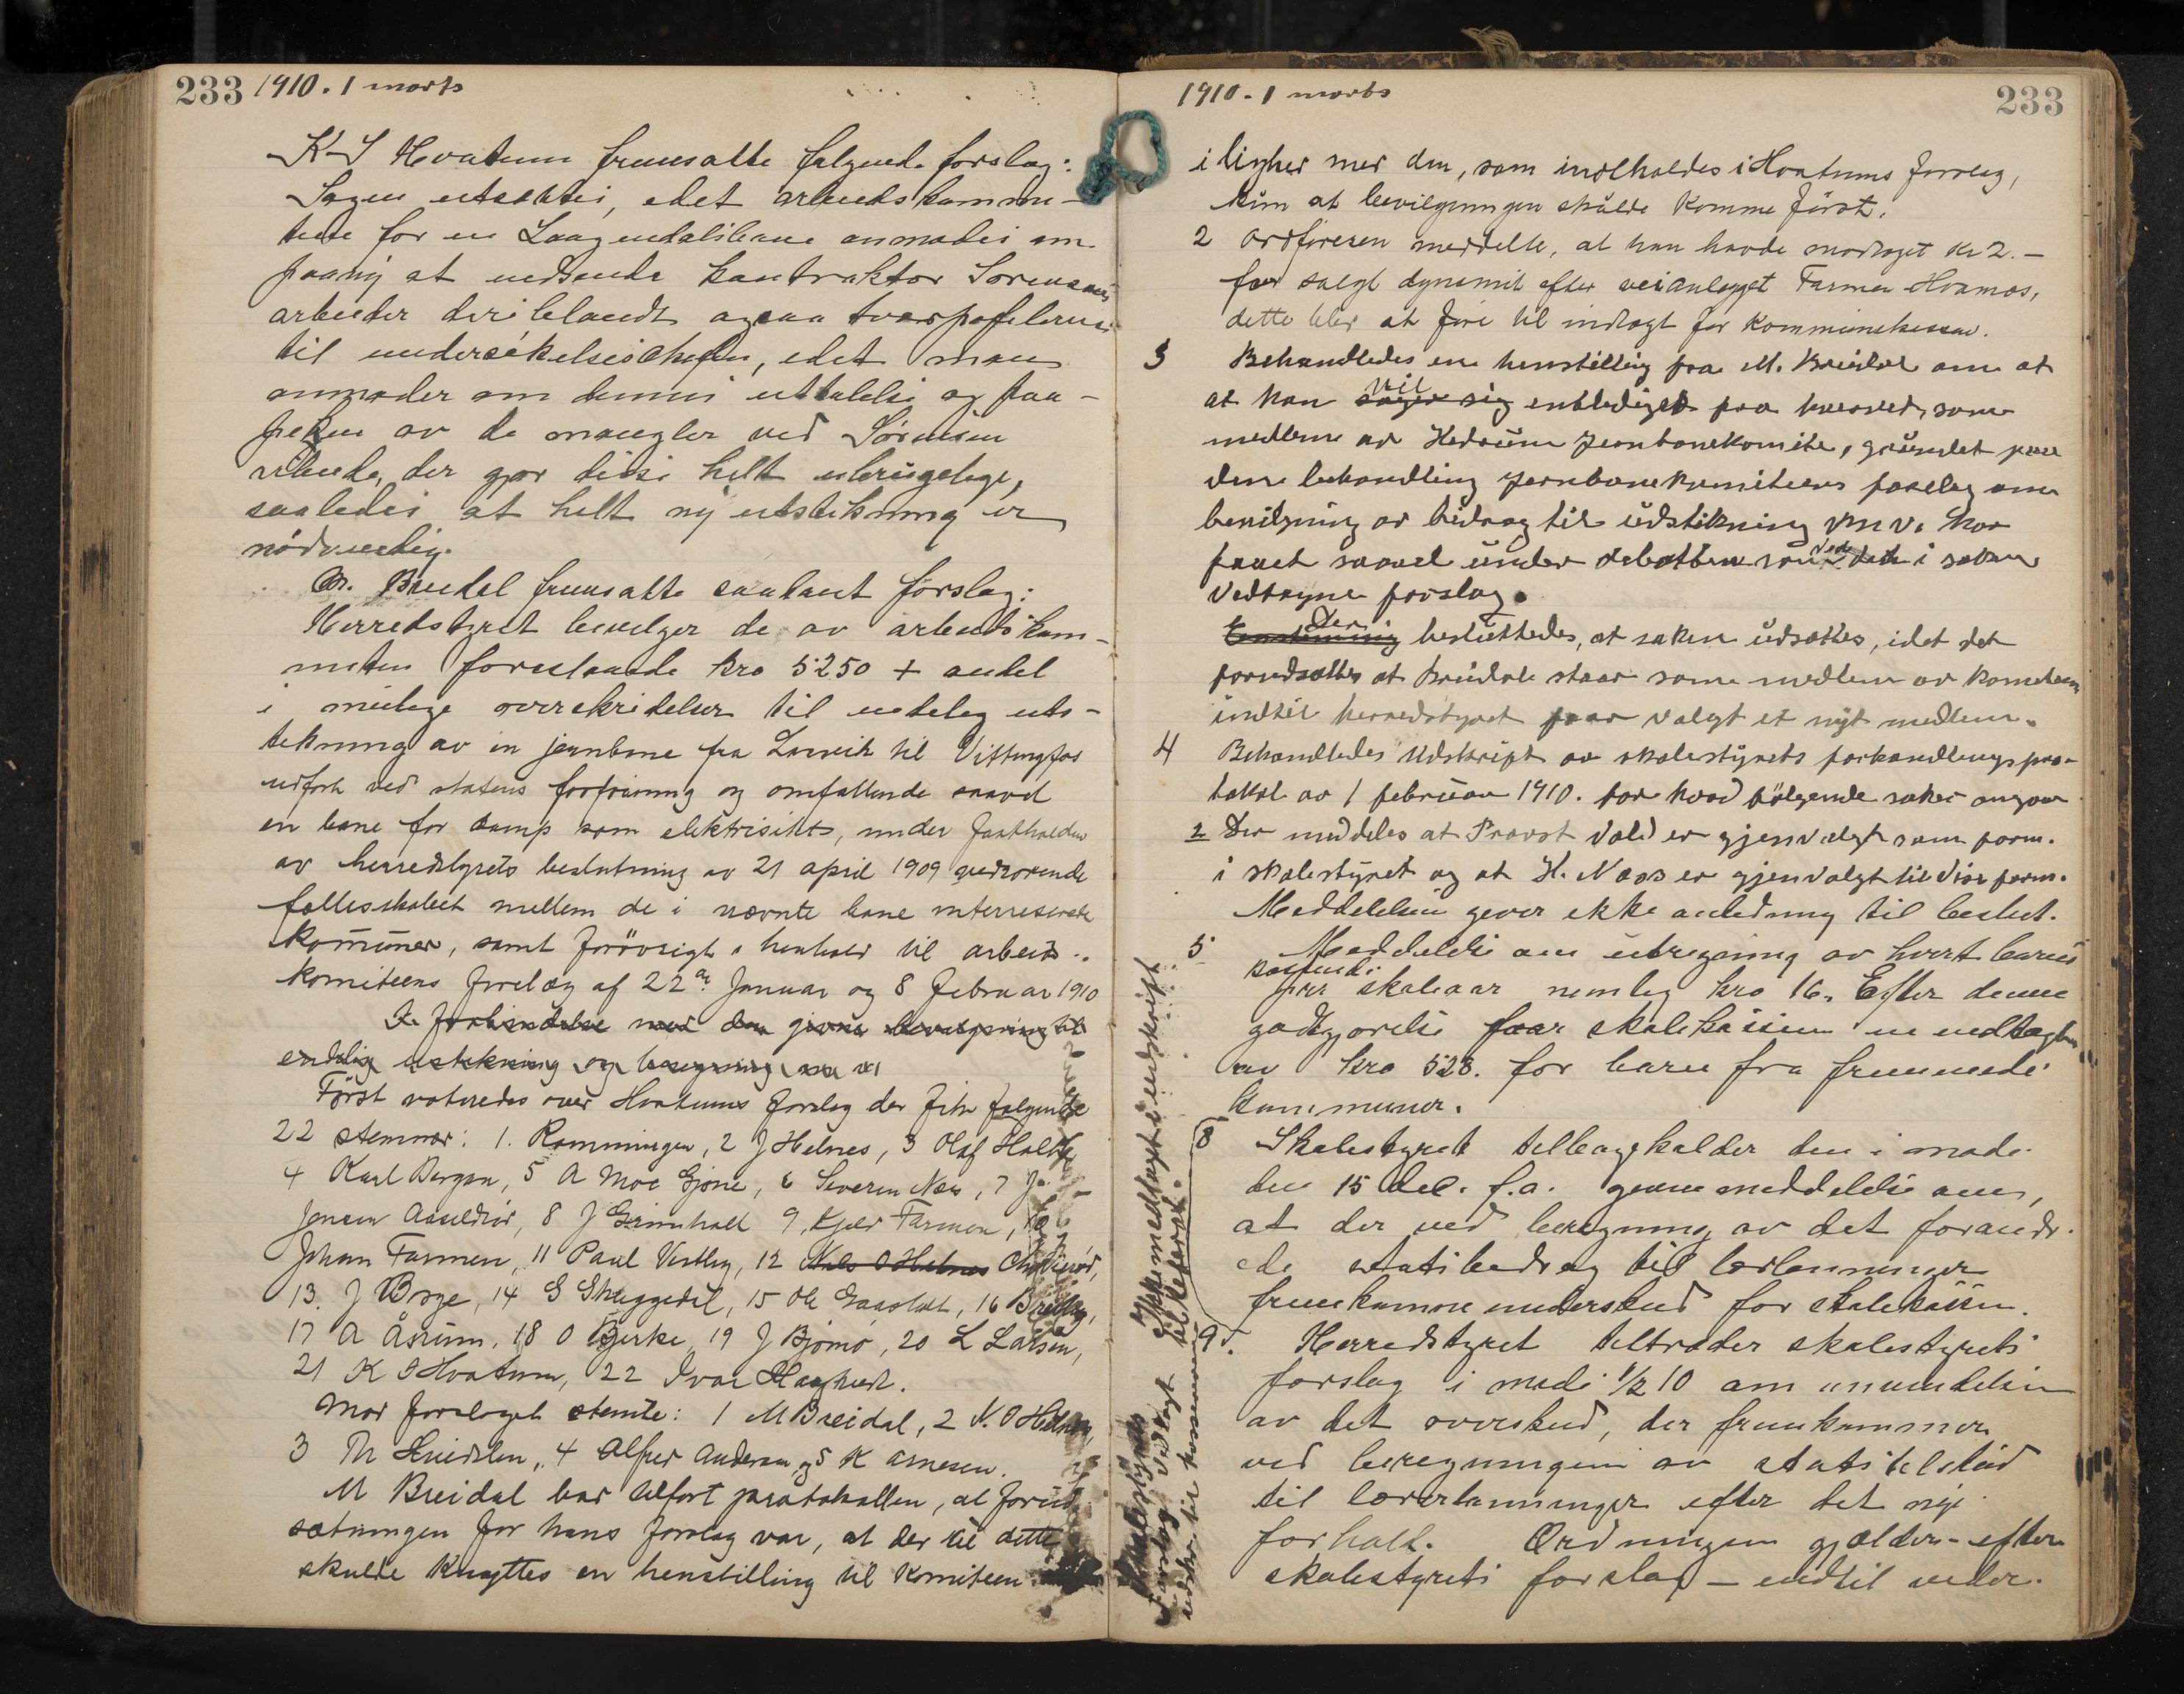 233 1910. 1 marts
K S Hvatum fremsatte følgende forslag:
Sagen utsættes, idet arbeidskommi-
teen for en Laagendalsbane anmodes om
paany at indsende kontraktør Sørensens
arbeider deriblandt ogsaa tværprofilerne
til undersøkelseschefen, idet man
anmoder om dennes uttalelse og paa-
peken av de mangler ved Sørensens
arbeide, der gjør disse helt ubrugelige,
saaledes at helt ny utstikning er
nödvendig.
M. Breidal fremsatte saalydt forslag:
Herredstyret bevilger de av arbeidskom-
miteen foreslaaede kro 5250 + andel
i mulige overskridelser til endelig uts-
tikning av en jernbane fra Larvik til Vittingfos
udført ved statens forføining og omfattende saavel
en bane for damp som elektrisitet, under fastholden
av herredstyrets beslutning av 21 april 1909 vedrørende
fællesskabet mellem de i nævnte bane interreserede
Kommuner, samt forøvrigt i henhold til arbeids-
komiteens forelæg af 22de Januar og 8 Februar 1910
I forbindelse med den givne bevilgning til
endelig utstikning og beregning
Först voteredes over Hvatums forslag der fik følgende
22 stemmer: 1. Ramningen, 2 J Helnes, 3 Olaf Holthe
4 Karl Bergan, 5 A Moe Gjone, 6 Severin Næs, 7 J.
Jensen Aaseldrød, 8 J Grinholt 9, Kjær Farmen, 10
Johan Farmen, 11 Paul Vestby, 12 Nils O Helnes
13. J Borge, 14 G Skuggedal, 15 Ole Gaasholt, 16
17 A Åsrum, 18 O Bjerke 19 J Bjørnø, 20 L Larsen,
21 K S Hvatum, 22 Ivar Haaghundt.
Mod forslaget stemte: 1 M Breidal, 2 N. O Helnes,
3 Th Hvidsten, 4 Alfred Andersen og 5 K Arnesen.
M Breidal har tilført protokollen, at forud
sætningen for hans forslag var, at der til dette
skulde knyttes en henstilling til Komiteen
1910 - 1 marts 233
i lighed med den, som indholdes i Hvatums forslag,
kun at bevilgningen skulde komme först.
2 Ordføreren meddelte, at han havde modtaget Kr 2.-
for solgt dynamit efter veianlegget Farmen Hvamos,
dette blir at före til indtægt for Kommunekassen.
3 Behandledes en henstilling fra M. Breidal om at
at han söger sig vil entlediges fra hvervet som
medlem av Hedrum Jernbanekomite, grundet paa
den behandling jernbanekomiteens forslag om
bevilgning av bidrag til udstikning m.v. har
faaet saavel under debatten som ved det i saken
vedtagne forslag.
Enstemmig Der besluttedes, at saken udsættes, idet det
forudsættes at Breidal staar som medlem av komiteen
indtil herredstyret faar valgt et nyt medlem.
4 Behandledes Udskrift av skolestyrets forhandlingspro-
tokol av 1 februar 1910. for hvad følgende saker angaar
2 Der meddeles at Provst Vold er gjenvalgt som form.
i skolestyret og at H. Næss er gjenvalgt til viseform.
Meddelelsen gjever ikke anledning til beslut.
5 Meddelelse om utregning av hvert barns
kostende
per skoleaar nemlig kro 16. Efter denne
godtgjørelse faar skolekassen en indtægt
av kro 528. for barn fra fremmede
kommuner.
8 Skolestyret tilbagekalder den i møde
den 15 dec. f.a. givne meddelelse om,
at der ved beregning av det forandr-
ede statsbedrag til lærlønninger
fremkommer underskud for skolekassen.
9. Herredstyret tiltræder skolestyrets
forslag i møde 1/2 10 om anvendelsen
av det overskud, der fremkommer
ved beregningen av statstilskud
til lærerlønninger efter det nye
forhold. Ordningen gjælder - efter
skolestyrets forslag - indtil videre.
Skolestyrets
forslag vedtaget
Ikke medtaget i utskrift
til